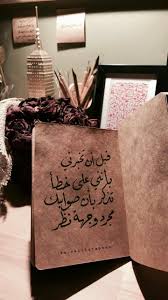 قبل أن تخبرني
بأنني على خطأ
تذكر بأن صوابك
مجرد وجهة نظر